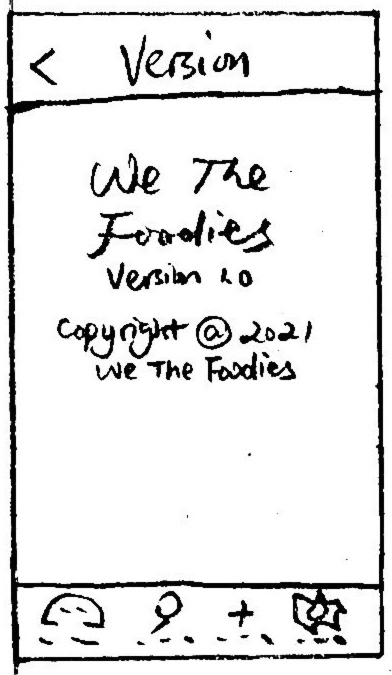 < Version
We The
Foodies
Version 1.0
Copyright @ 2021
We The Foodies
+